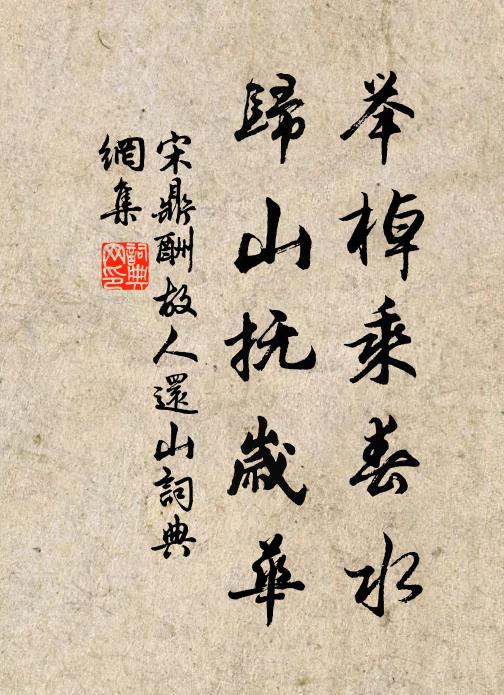 举棹乘春水
歸山抚歲華
宋鼎酬故人還山詞典
網集
詞典
网印